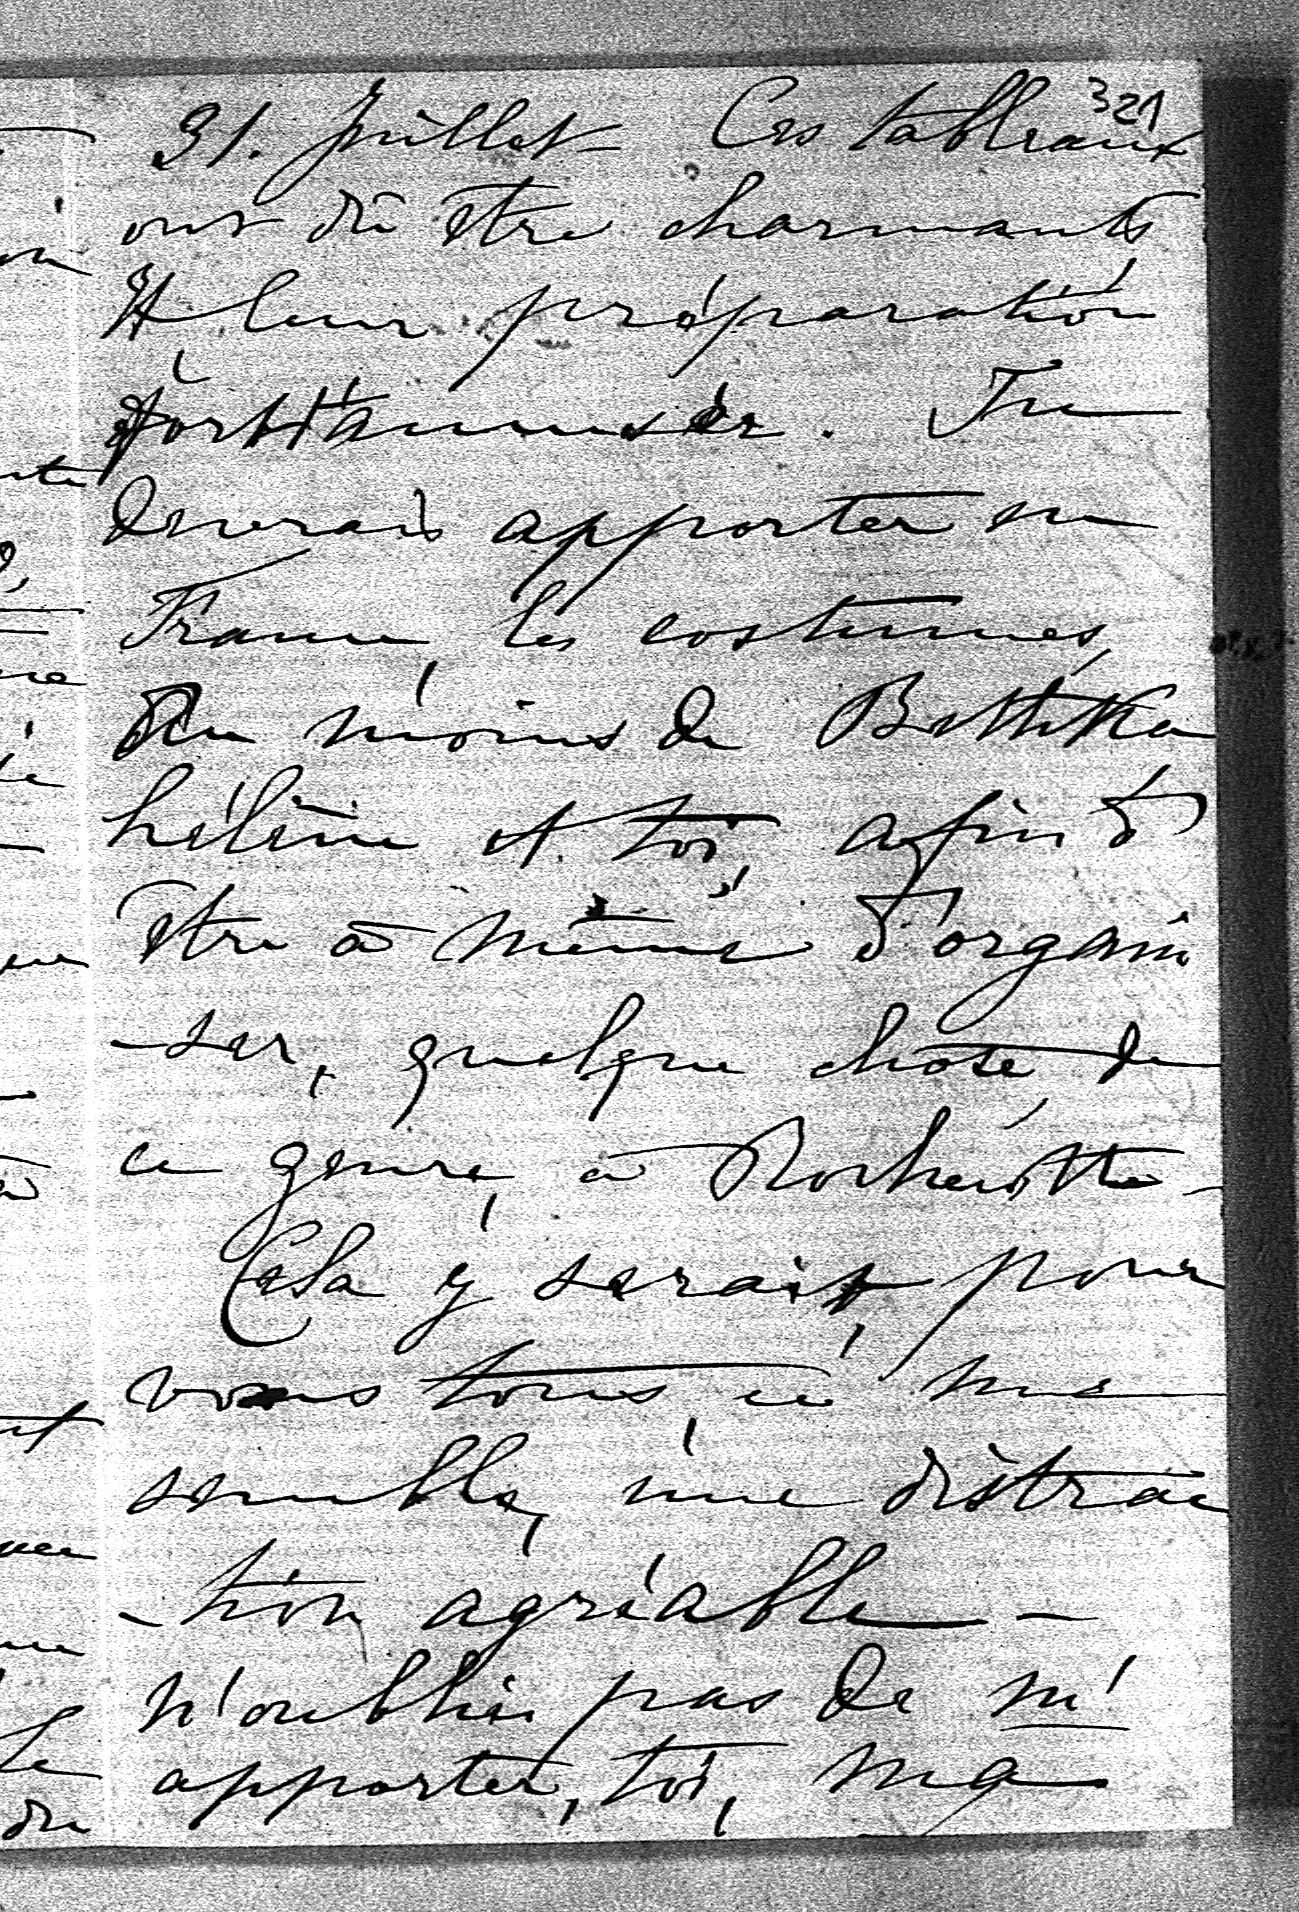 321
31. Juillet – Ces tableaux
ont dû être charmants
Et leur préparation
fort t'amuser. Tu
devrais apporter en
France, les costumes,
du moins de Bettika
hélène et toi, afin d'
être à même d'organi
-ser, quelque chose de
ce genre, à Rochecotte –
Cela y serait, pour
vous tous, ce me
semble, une distrac
-tion agréable –
N'oublie pas de m'
apporter, toi, ma